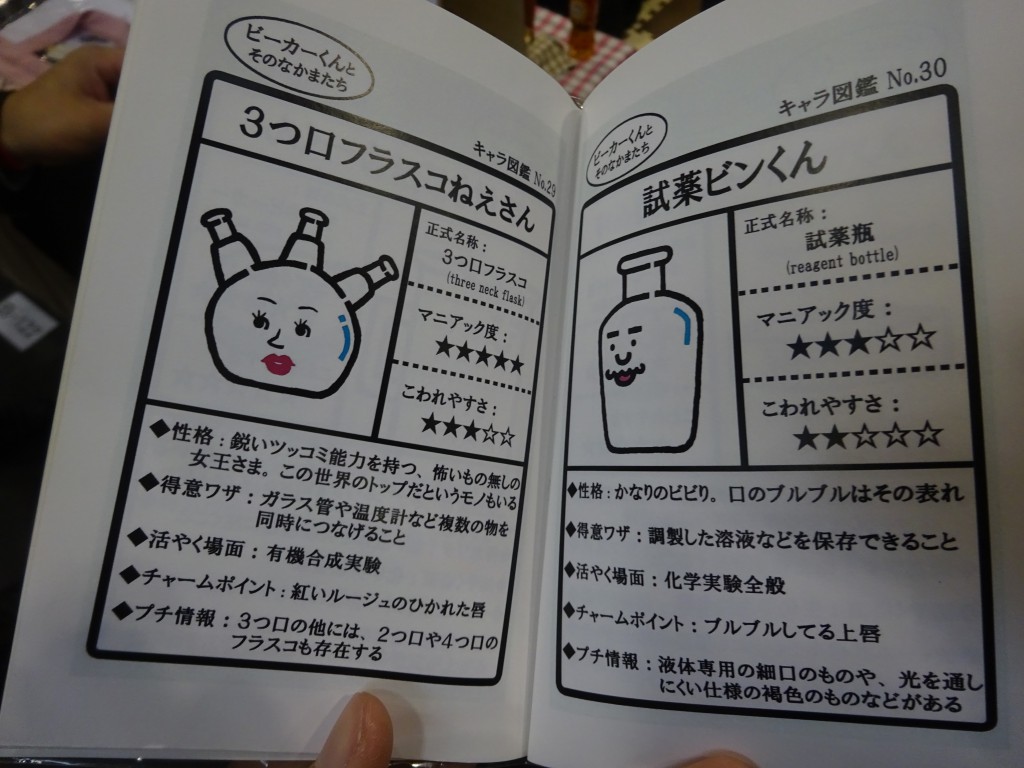 ビーカーくんと
そのなかまたち
キャラ図鑑 No.29
3つ口フラスコねえさん
正式名称：
3つ口フラスコ
(three neck flask)
マニアック度：
★★★★★
こわれやすさ：
★★★☆☆
◆性格：鋭いツッコミ能力を持つ、怖いもの無しの
女王さま。この世界のトップだというモノもいる
◆得意ワザ：ガラス管や温度計など複数の物を
同時につなげること
◆活やく場面：有機合成実験
◆チャームポイント：紅いルージュのひかれた唇
◆プチ情報：3つ口の他には、2つ口や4つ口の
フラスコも存在する
ビーカーくんと
そのなかまたち
キャラ図鑑 No.30
試薬ビンくん
正式名称：
試薬瓶
(reagent bottle)
マニアック度：
★★★☆☆
こわれやすさ：
★★☆☆☆
◆性格：かなりのビビり。口のブルブルはその表れ
◆得意ワザ：調製した溶液などを保存できること
◆活やく場面：化学実験全般
◆チャームポイント：ブルブルしてる上唇
◆プチ情報：液体専用の細口のものや、光を通し
にくい仕様の褐色のものなどがある